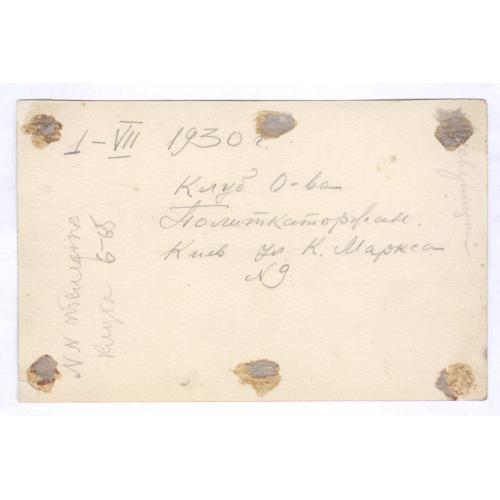 1-VII 1930 г.
Клуб О-ва
Политкаторжан.
Киев ул. К. Маркса
№9
№№ телефона
клуба 6-65